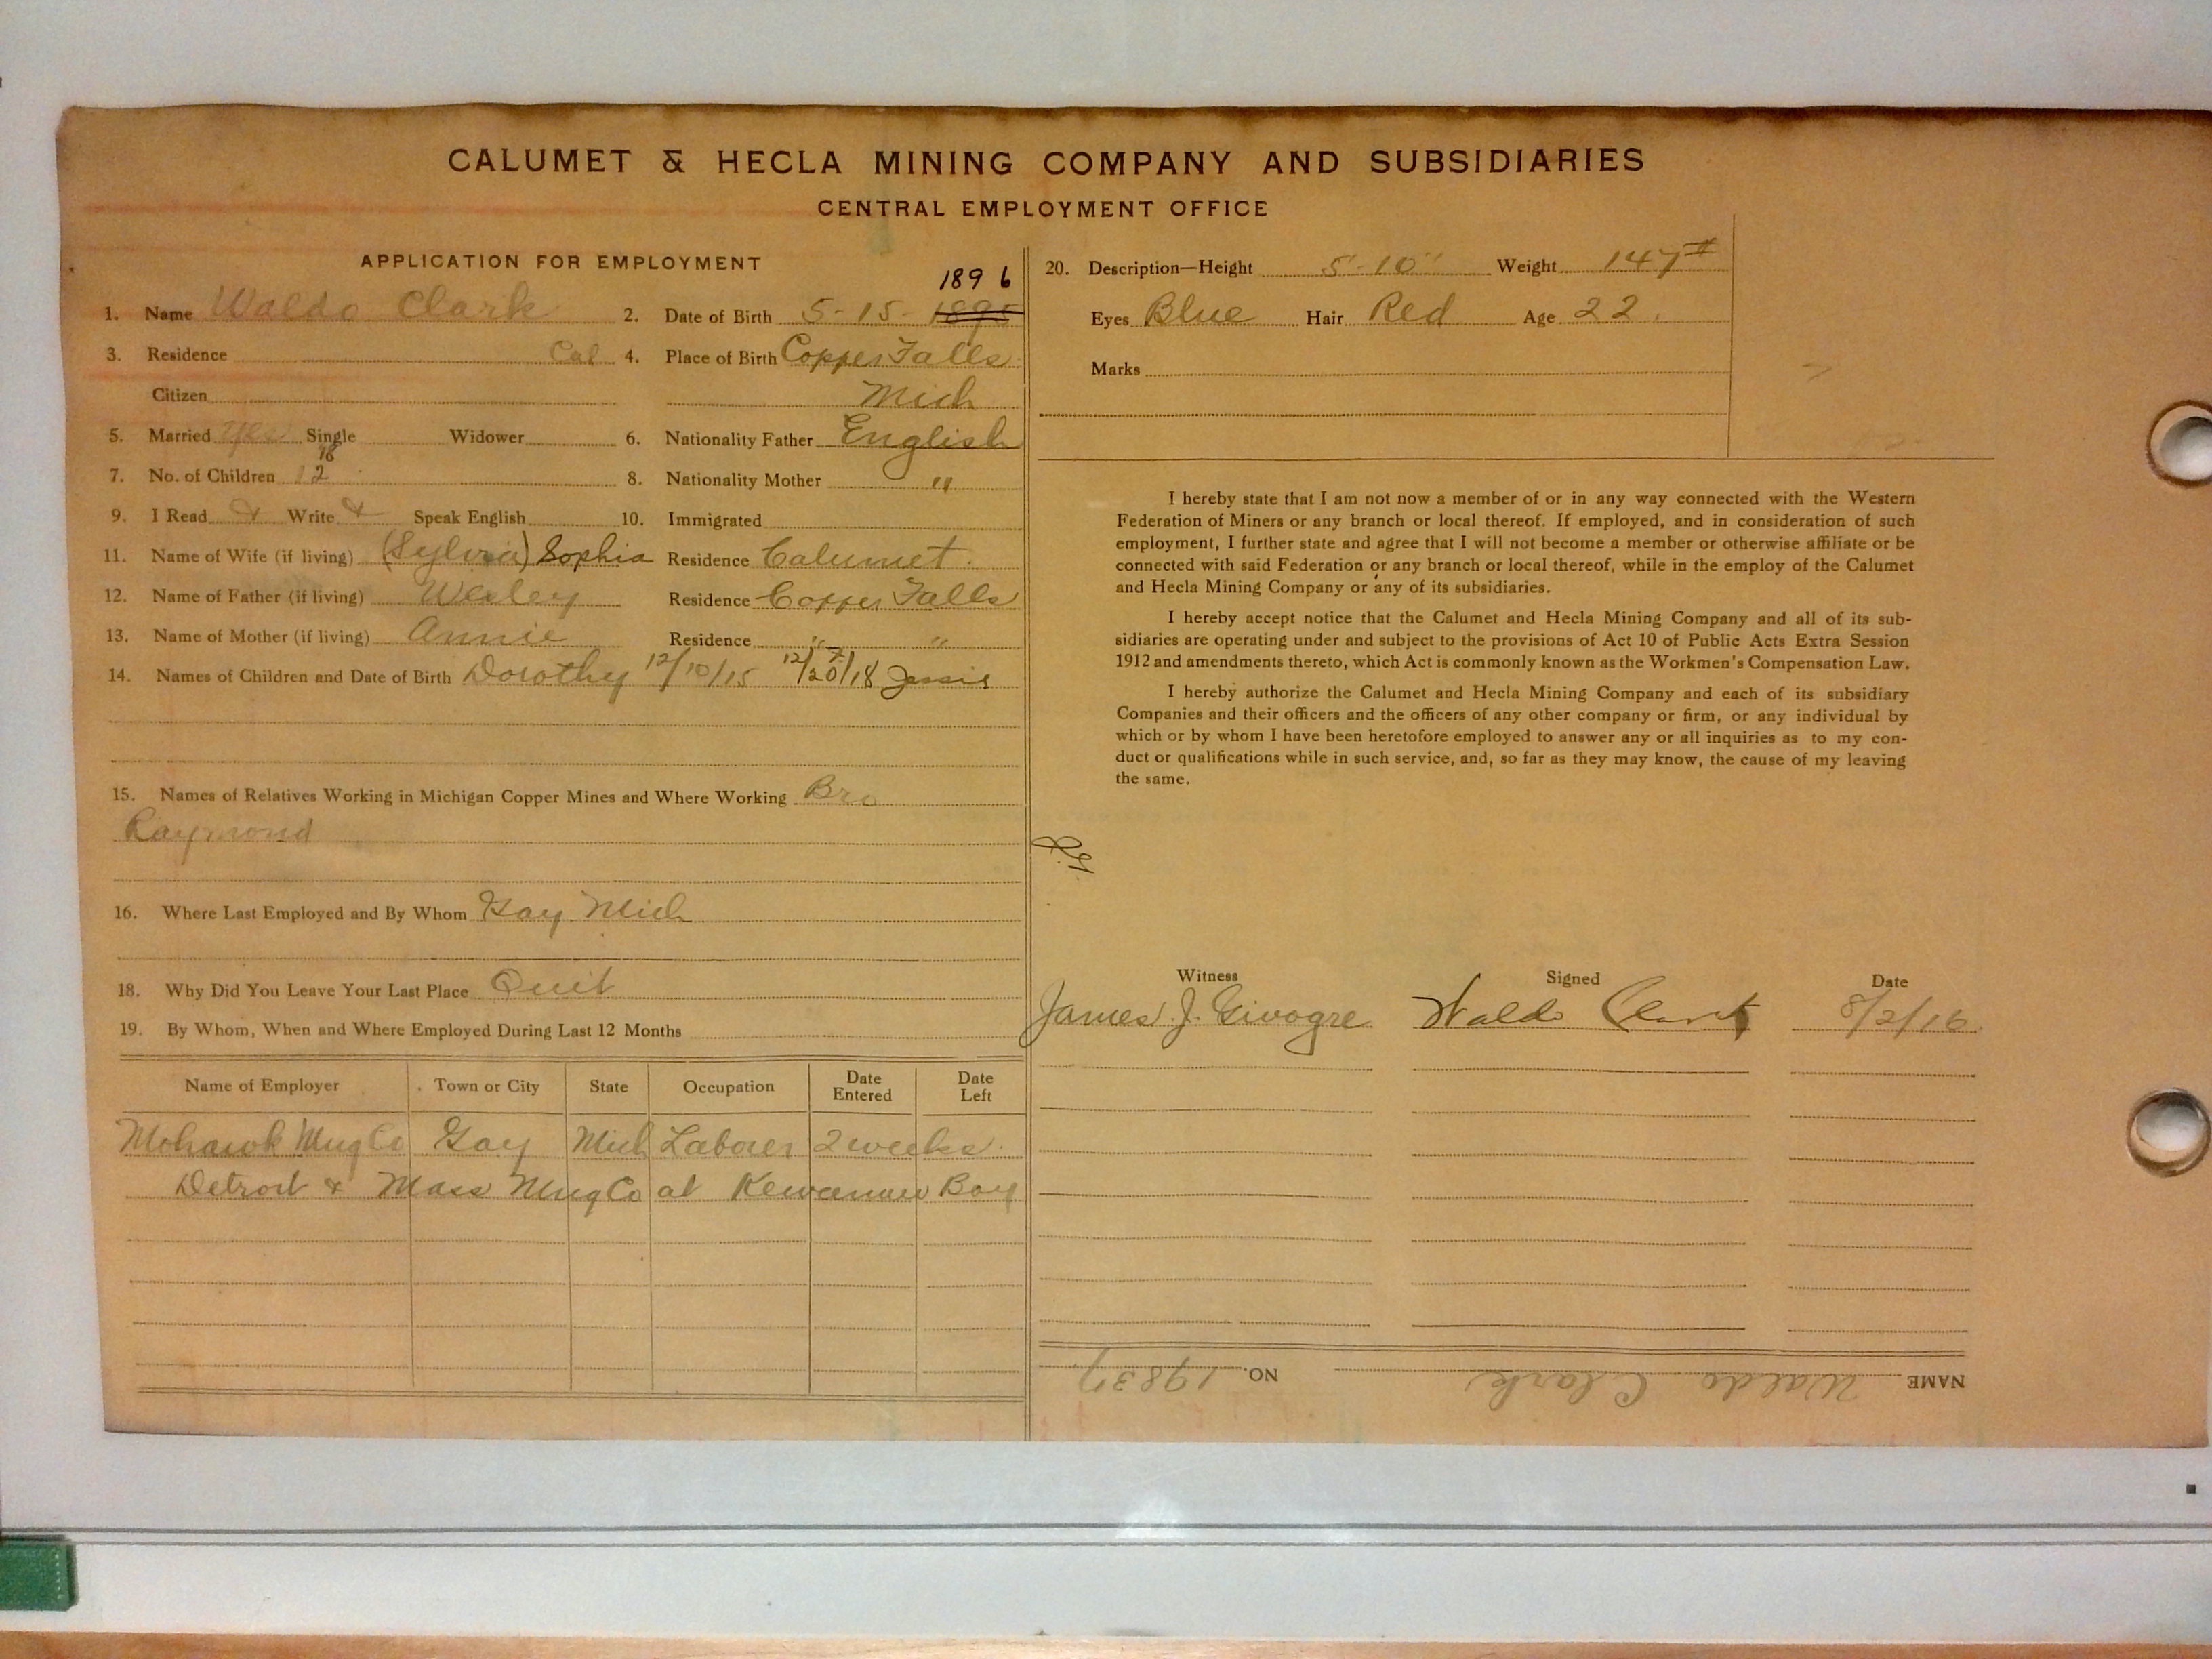 CALUMET & HECLA MINING COMPANY AND SUBSIDIARIES
CENTRAL EMPLOYMENT OFFICE
APPLICATION FOR EMPLOYMENT
1896
1. Name Waldo Clark 2. Date of Birth 5-15-1895
3. Residence Cal 4. Place of Birth Copper Falls
Citizen Mich
5. Married Yes Single Widower 6. Nationality Father English
18
7. No. of Children 1 2 8. Nationality Mother "
9. I Read & Write & Speak English 10. Immigrated
11. Name of Wife (if living) (Sylvia) Sophia Residence Calumet.
12. Name of Father (if living) Wesley Residence Copper Falls
13. Name of Mother (if living) Annie Residence " "
14. Names of Children and Date of Birth Dorothy 12/10/15 12/20/18 Jessie
15. Names of Relatives Working in Michigan Copper Mines and Where Working Bro
Raymond
16. Where Last Employed and By Whom Gay Mich
18. Why Did You Leave Your Last Place Quit
19. By Whom, When and Where Employed During Last 12 Months
Name of Employer Town or City State Occupation Date Entered Date Left
Mohawk Mng Co Gay Mich Laborer 2 weeks.
Detroit & Mass Mng Co at Kewanaw Bay
20. Description—Height 5'-10" Weight 147#
Eyes Blue Hair Red Age 22.
Marks
I hereby state that I am not now a member of or in any way connected with the Western
Federation of Miners or any branch or local thereof. If employed, and in consideration of such
employment, I further state and agree that I will not become a member or otherwise affiliate or be
connected with said Federation or any branch or local thereof, while in the employ of the Calumet
and Hecla Mining Company or any of its subsidiaries.
I hereby accept notice that the Calumet and Hecla Mining Company and all of its sub-
sidiaries are operating under and subject to the provisions of Act 10 of Public Acts Extra Session
1912 and amendments thereto, which Act is commonly known as the Workmen's Compensation Law.
I hereby authorize the Calumet and Hecla Mining Company and each of its subsidiary
Companies and their officers and the officers of any other company or firm, or any individual by
which or by whom I have been heretofore employed to answer any or all inquiries as to my con-
duct or qualifications while in such service, and, so far as they may know, the cause of my leaving
the same.
Witness Signed Date
James J. Givogre Waldo Clark 8/2/16
NAME Waldo Clark NO. 19837